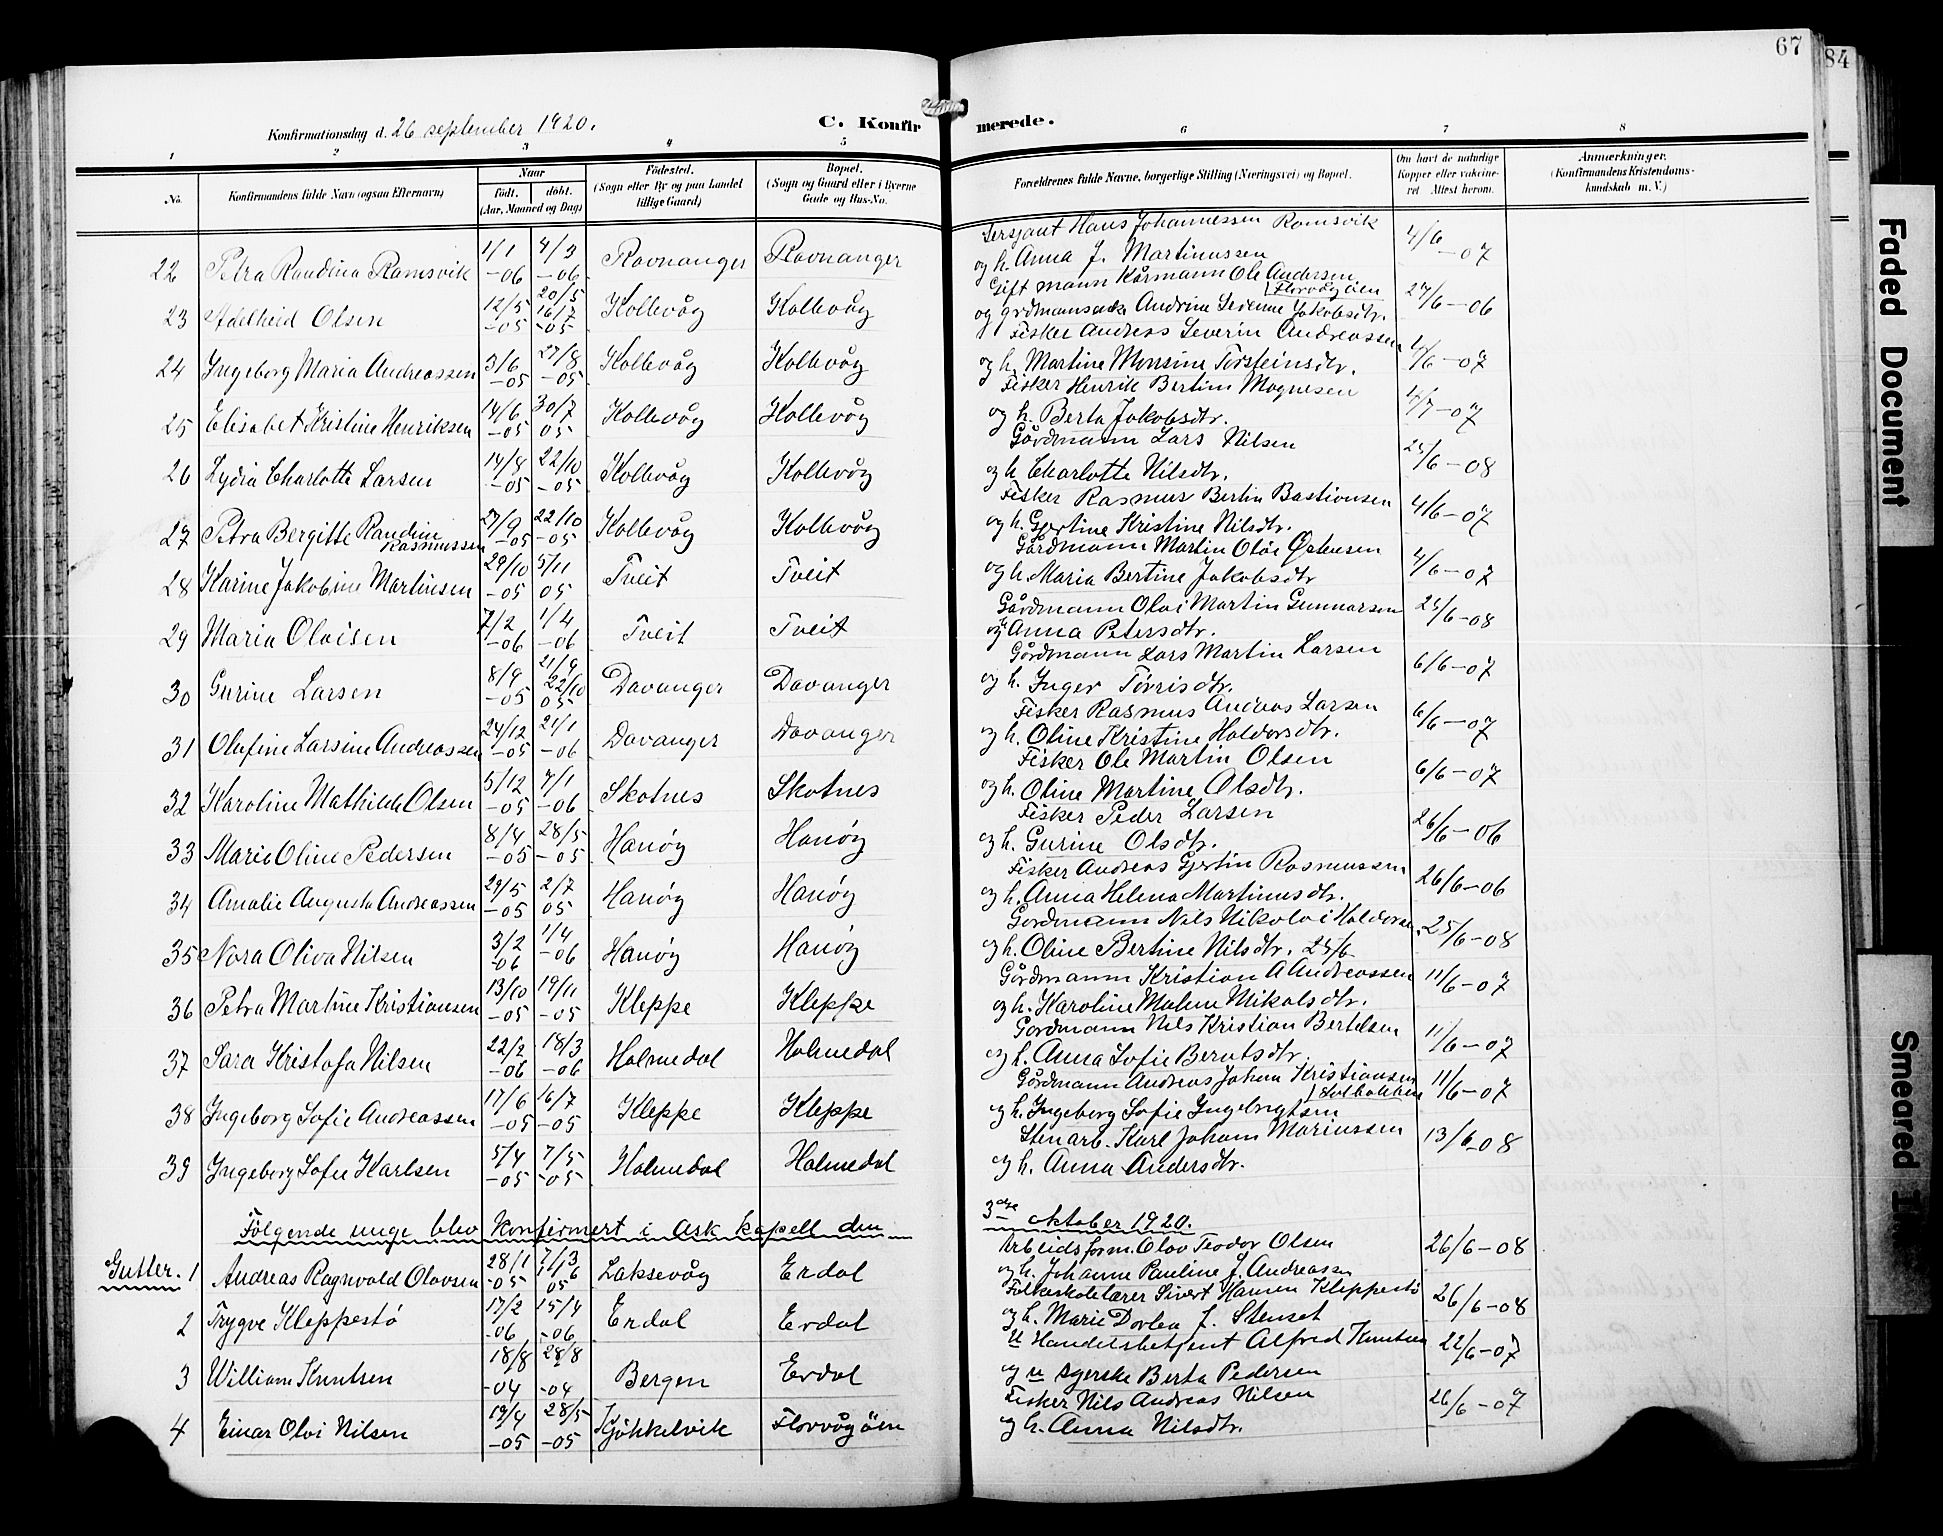 67
84
Konfirmationsdag d. 26 september 1920.
C. Konfirmerede.
1 2 3 4 5 6 7 8
No.
Konfirmandens fulde Navn (ogsaa Efternavn)
Naar
født. døbt.
(Aar, Maaned og Dag)
Fødested.
(Sogn eller By og paa Landet
tillige Gaard)
Bopæl.
(Sogn og Gaard eller i Byerne
Gade og Hus-No.
Forældrenes fulde Navne, borgerlige Stilling (Næringsvei) og Bopæl.
Om havt de naturlige
Kopper eller vakcine-
ret. Attest herom.
Anmærkninger.
(Konfirmandens Kristendoms-
kundskab m. V.)
22 Petra Randina Ramsvik 1/1 -06 4/3 -06 Ravnanger Ravnanger Sersjant Hans Johannessen Ramsvik
og h. Anna J. Martinussen 4/6 -07
23 Adelheid Olsen 12/5 -05 20/5 16/7 -05 Kollevåg Kollevåg Gift mann Kårmann Ole Andersen Florvågöen
og grdmannsenke Andrine Severine Jakobsdtr. 27/6 -06
24 Ingeborg Maria Andreassen 3/6 -05 27/8 -05 Kollevåg Kollevåg Fisker Andreas Severin Andreassen
og h. Martine Monsine Torsteinsdtr. 4/6 -07
25 Elisabet Kristine Henriksen 14/6 -05 30/7 05 Kollevåg Kollevåg Fisker Henrik Bertin Mognesen
og h. Berta Jakobsdtr. 4/7 -07
26 Lydia Charlotte Larsen 14/8 -05 22/10 -05 Kollevåg Kollevåg Gårdmann Lars Nilsen
og h. Charlotte Nilsdtr. 25/6 -08
27 Petra Bergitte Randine Rasmussen 27/9 -05 22/10 -05 Kollevåg Kollevåg Fisker Rasmus Bertin Bastiansen
og h. Gjertine Kristine Nilsdtr. 4/6 -07
28 Karine Jakobine Martinsen 29/10 -05 5/11 05 Tveit Tveit Gårdmann Martin Olai Østensen
og h. Maria Bertine Jakobsdtr 4/6 -07
29 Maria Olaisen 7/2 -06 1/4 -06 Tveit Tveit Gårdmann Olai Martin Gunnarsen
og h. Anna Petersdtr. 25/6 -08
30 Gurine Larsen 8/9 -05 21/9 22/10 05 Davanger Davanger Gårdmann Lars Martin Larsen
og h. Inger Torrisdtr. 6/6 -07
31 Olufine Larsine Andreassen 24/12 -05 21/1 -06 Davanger Davanger Fisker Rasmus Andreas Larsen
og h. Oline Kristine Haldorsdtr. 6/6 -07
32 Karoline Mathilde Olsen 5/12 -05 7/1 -06 Skotnes Skotnes Fisker Ole Martin Olsen
og h. Oline Martine Olsdtr. 6/6 -07
33 Marie Oline Pedersen 8/4 -05 28/5 -05 Hanøy Hanøy Fisker Peder Larsen
og h. Gurine Olsdtr. 26/6 -06
34 Amalie Augusta Andreassen 29/5 -05 2/7 05 Hanøy Hanøy Fisker Andreas Gjertin Rasmussen
og h. Anna Helena Martinusdtr. 26/6 -06
35 Nora Oliva Nilsen 3/2 -06 1/4 -06 Hanøy Hanøy Gordmann Nils Nikolai Haldorsen.
og h. Oline Bertine Nilsdtr. 25/6 25/6 -08
36 Petra Martine Kristiansen 13/10 -05 19/11 -05 Kleppe Kleppe Gårdmann Kristian A Andreassen
og h. Karoline Malene Nikolsdtr. 11/6 -07
37 Sara Kristofa Nilsen 22/2 -06 18/3 -06 Holmedal Holmedal Gordmann Nils Kristian Bertelsen
og h. Anna Sofie Berntsdtr. 11/6 -07
38 Ingeborg Sofie Andreassen 17/6 -05 16/7 -05 Kleppe Kleppe Gårdmann Andreas Johan Kristiansen
og h. Ingeborg Sofie Ingebrigtsen 11/6 -07
39 Ingeborg Sofie Karlsen 5/4 -05 7/5 -05 Holmedal Holmedal Stenarb. Karl Johan Mariussen
og h. Anna Andersdtr. 13/6 -08
Følgende unge blev konfirmert i Ask kapell den 3dje oktober 1920.
Gutter. 1 Andreas Ragnvald Olavsen 28/1 -05 Laksevåg Erdal Arbeidsform. Olav Teodor Olsen
og h. Johanne Pauline J. Andreassen 26/6 -08
2 Trygve Kleppestö 17/2 -06 15/4 -06 Erdal Erdal Folkeskolelærer Sivert Hansen Kleppestö
og h. Marie Dorlea J. Stenset 26/6 -08
3 William Knutsen 18/8 -04 28/8 -04 Bergen Erdal U Handelsbetjent Alfred Knutsen
og u syerske Berta Pedersen 22/6 -07
4 Einar Olai Nilsen 19/4 -05 28/5 -05 Kjøkkelvik Florvågöen Fisker Nils Andreas Nilsen
og h. Anna Nilsdtr. 26/6 -07
Faded Document
Smeared